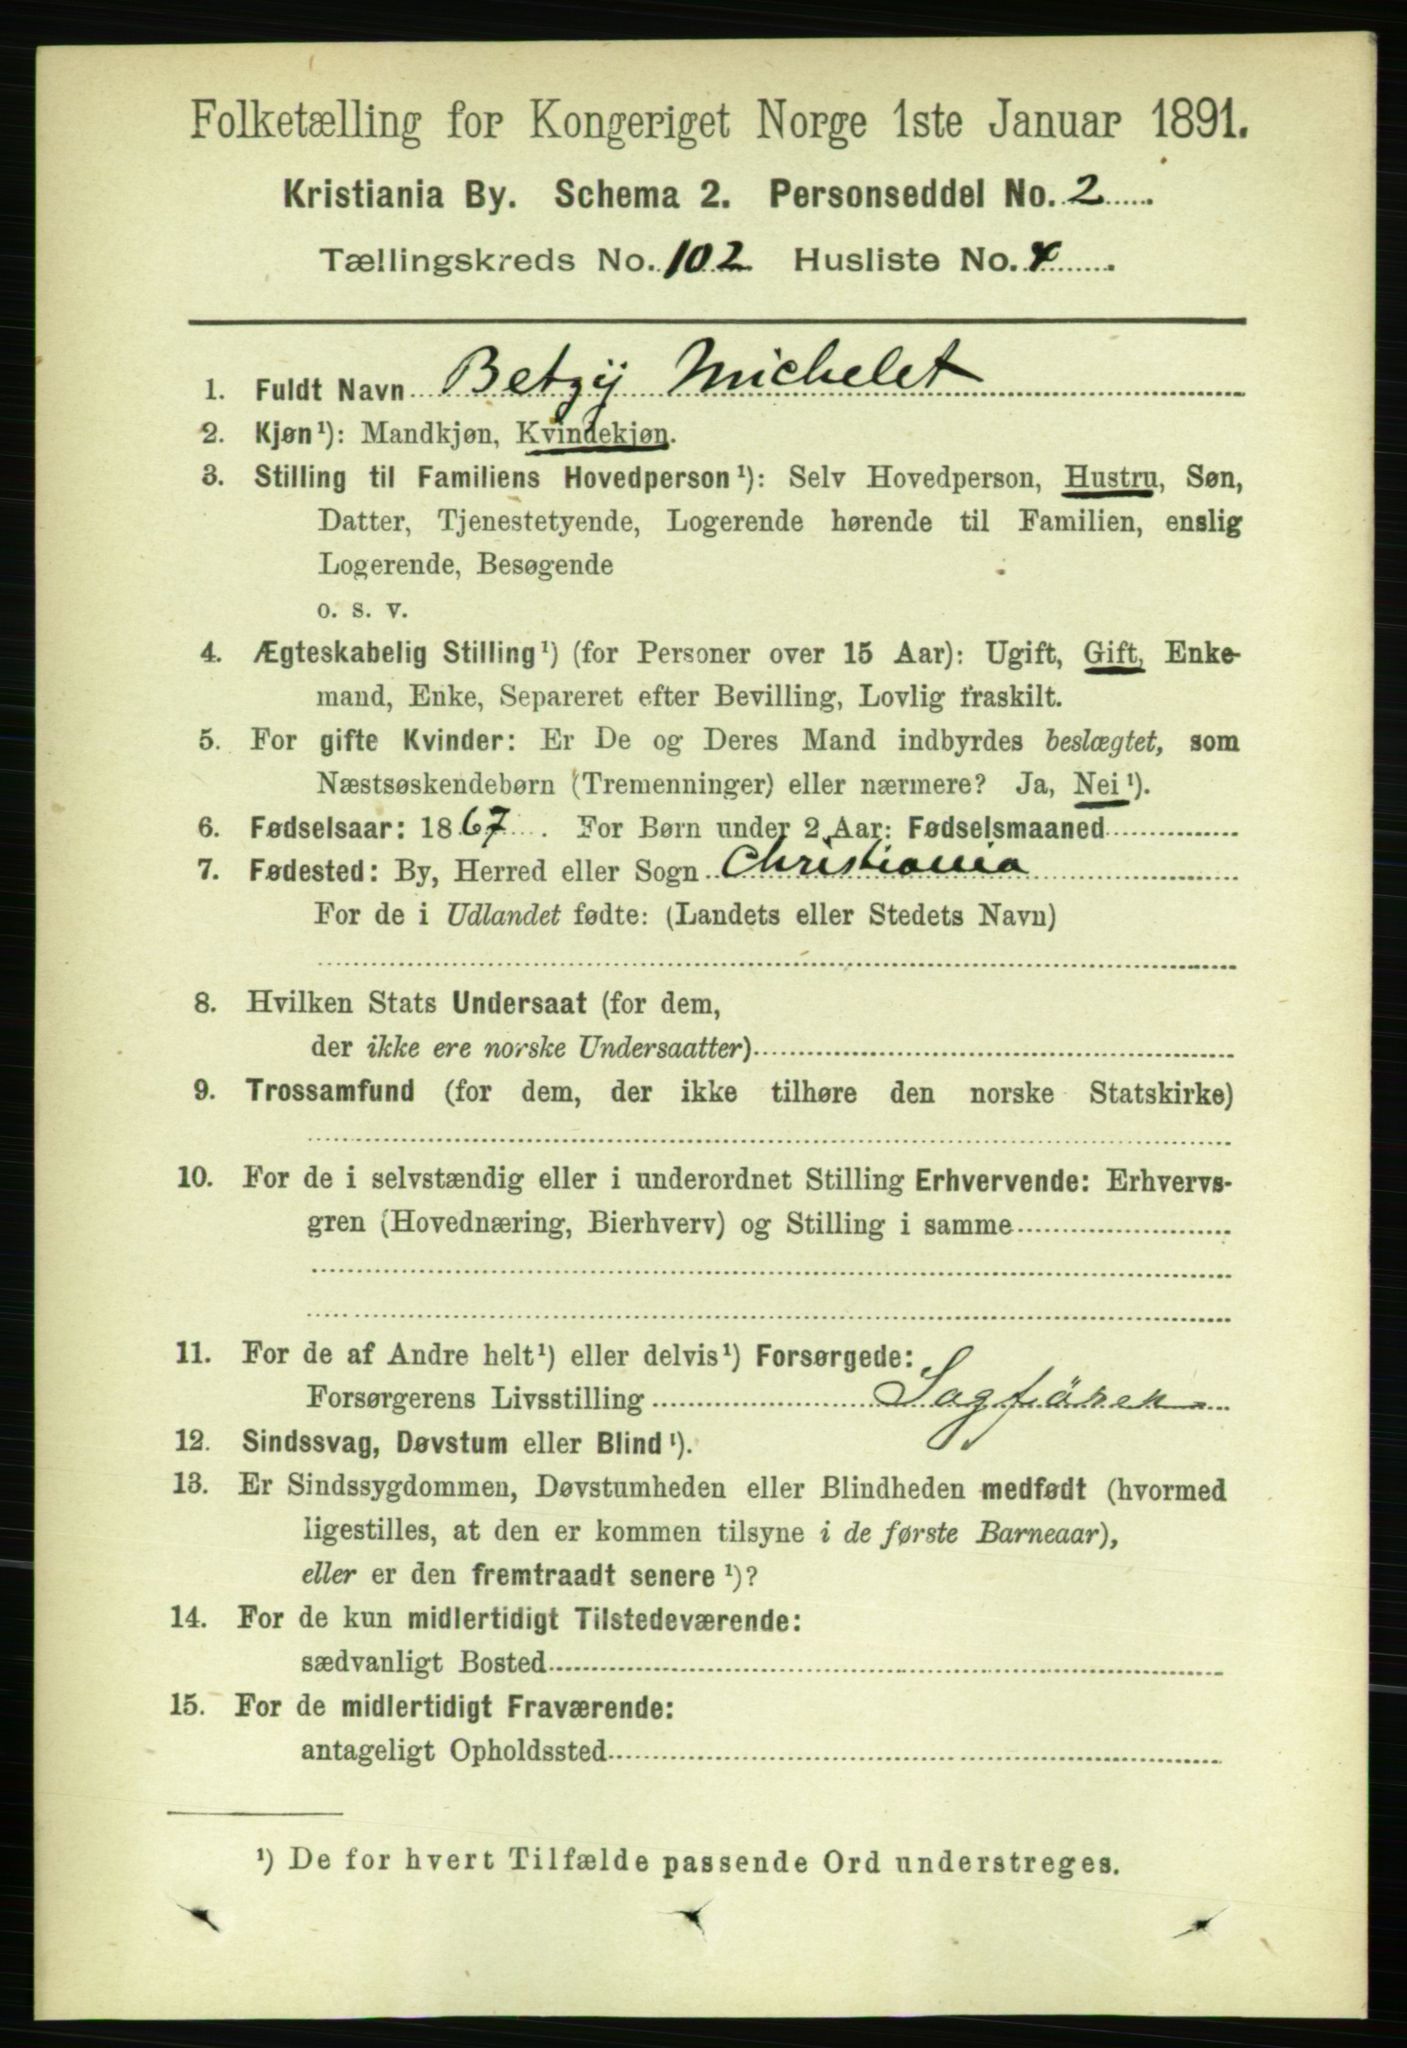 Folketælling for Kongeriget Norge 1ste Januar 1891.
Kristiania By. Schema 2. Personseddel No. 2
Tællingskreds No. 102 Husliste No. 4
1. Fuldt Navn Betzij Michelet
2. Kjøn¹): Mandkjøn, Kvindekjøn.
3. Stilling til Familiens Hovedperson¹): Selv Hovedperson, Hustru, Søn,
Datter, Tjenestetyende, Logerende hørende til Familien, enslig
Logerende, Besøgende
o. s. v.
4. Ægteskabelig Stilling¹) (for Personer over 15 Aar): Ugift, Gift, Enke-
mand, Enke, Separeret efter Bevilling, Lovlig fraskilt.
5. For gifte Kvinder: Er De og Deres Mand indbyrdes beslægtet, som
Næstsøskendebørn (Tremenninger) eller nærmere? Ja, Nei¹).
6. Fødselsaar: 1867. For Børn under 2 Aar: Fødselsmaaned
7. Fødested: By, Herred eller Sogn Christiania
For de i Udlandet fødte: (Landets eller Stedets Navn)
8. Hvilken Stats Undersaat (for dem,
der ikke ere norske Undersaatter)
9. Trossamfund (for dem, der ikke tilhøre den norske Statskirke)
10. For de i selvstændig eller i underordnet Stilling Erhvervende: Erhvervs-
gren (Hovednæring, Bierhverv) og Stilling i samme
11. For de af Andre helt¹) eller delvis¹) Forsørgede:
Forsørgerens Livsstilling Sagfören
12. Sindssvag, Døvstum eller Blind¹).
13. Er Sindssygdommen, Døvstumheden eller Blindheden medfødt (hvormed
ligestilles, at den er kommen tilsyne i de første Barneaar),
eller er den fremtraadt senere¹)?
14. For de kun midlertidigt Tilstedeværende:
sædvanligt Bosted
15. For de midlertidigt Fraværende:
antageligt Opholdssted
¹) De for hvert Tilfælde passende Ord understreges.